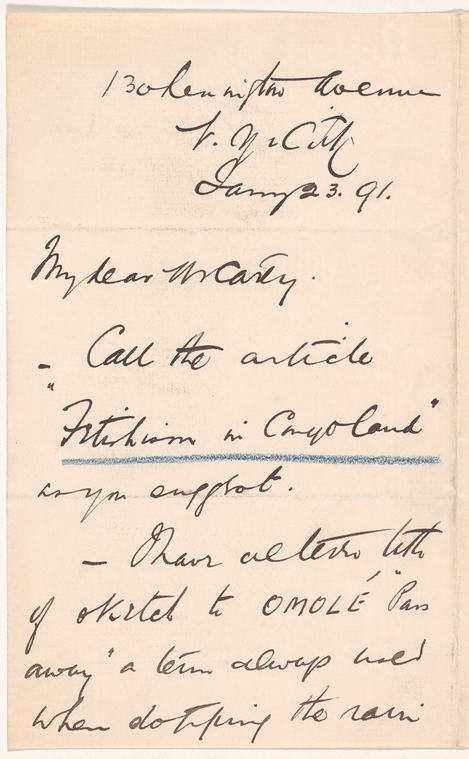 130 Lexington Avenue
N. Y. City
Jany 23. 91.
My dear McCarty.
– Call the article
"Fetishism in Congo Land"
as you suggest.
– I have altered title
of sketch to OMOLÉ, "Pass
away" a term always used
when stopping the rain